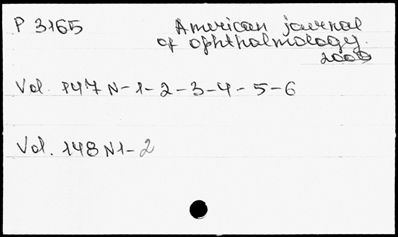 P 3165 American journal
of ophthalmology.
2009
Vol. 147 N-1-2-3-4-5-6
Vol. 148 N1-2